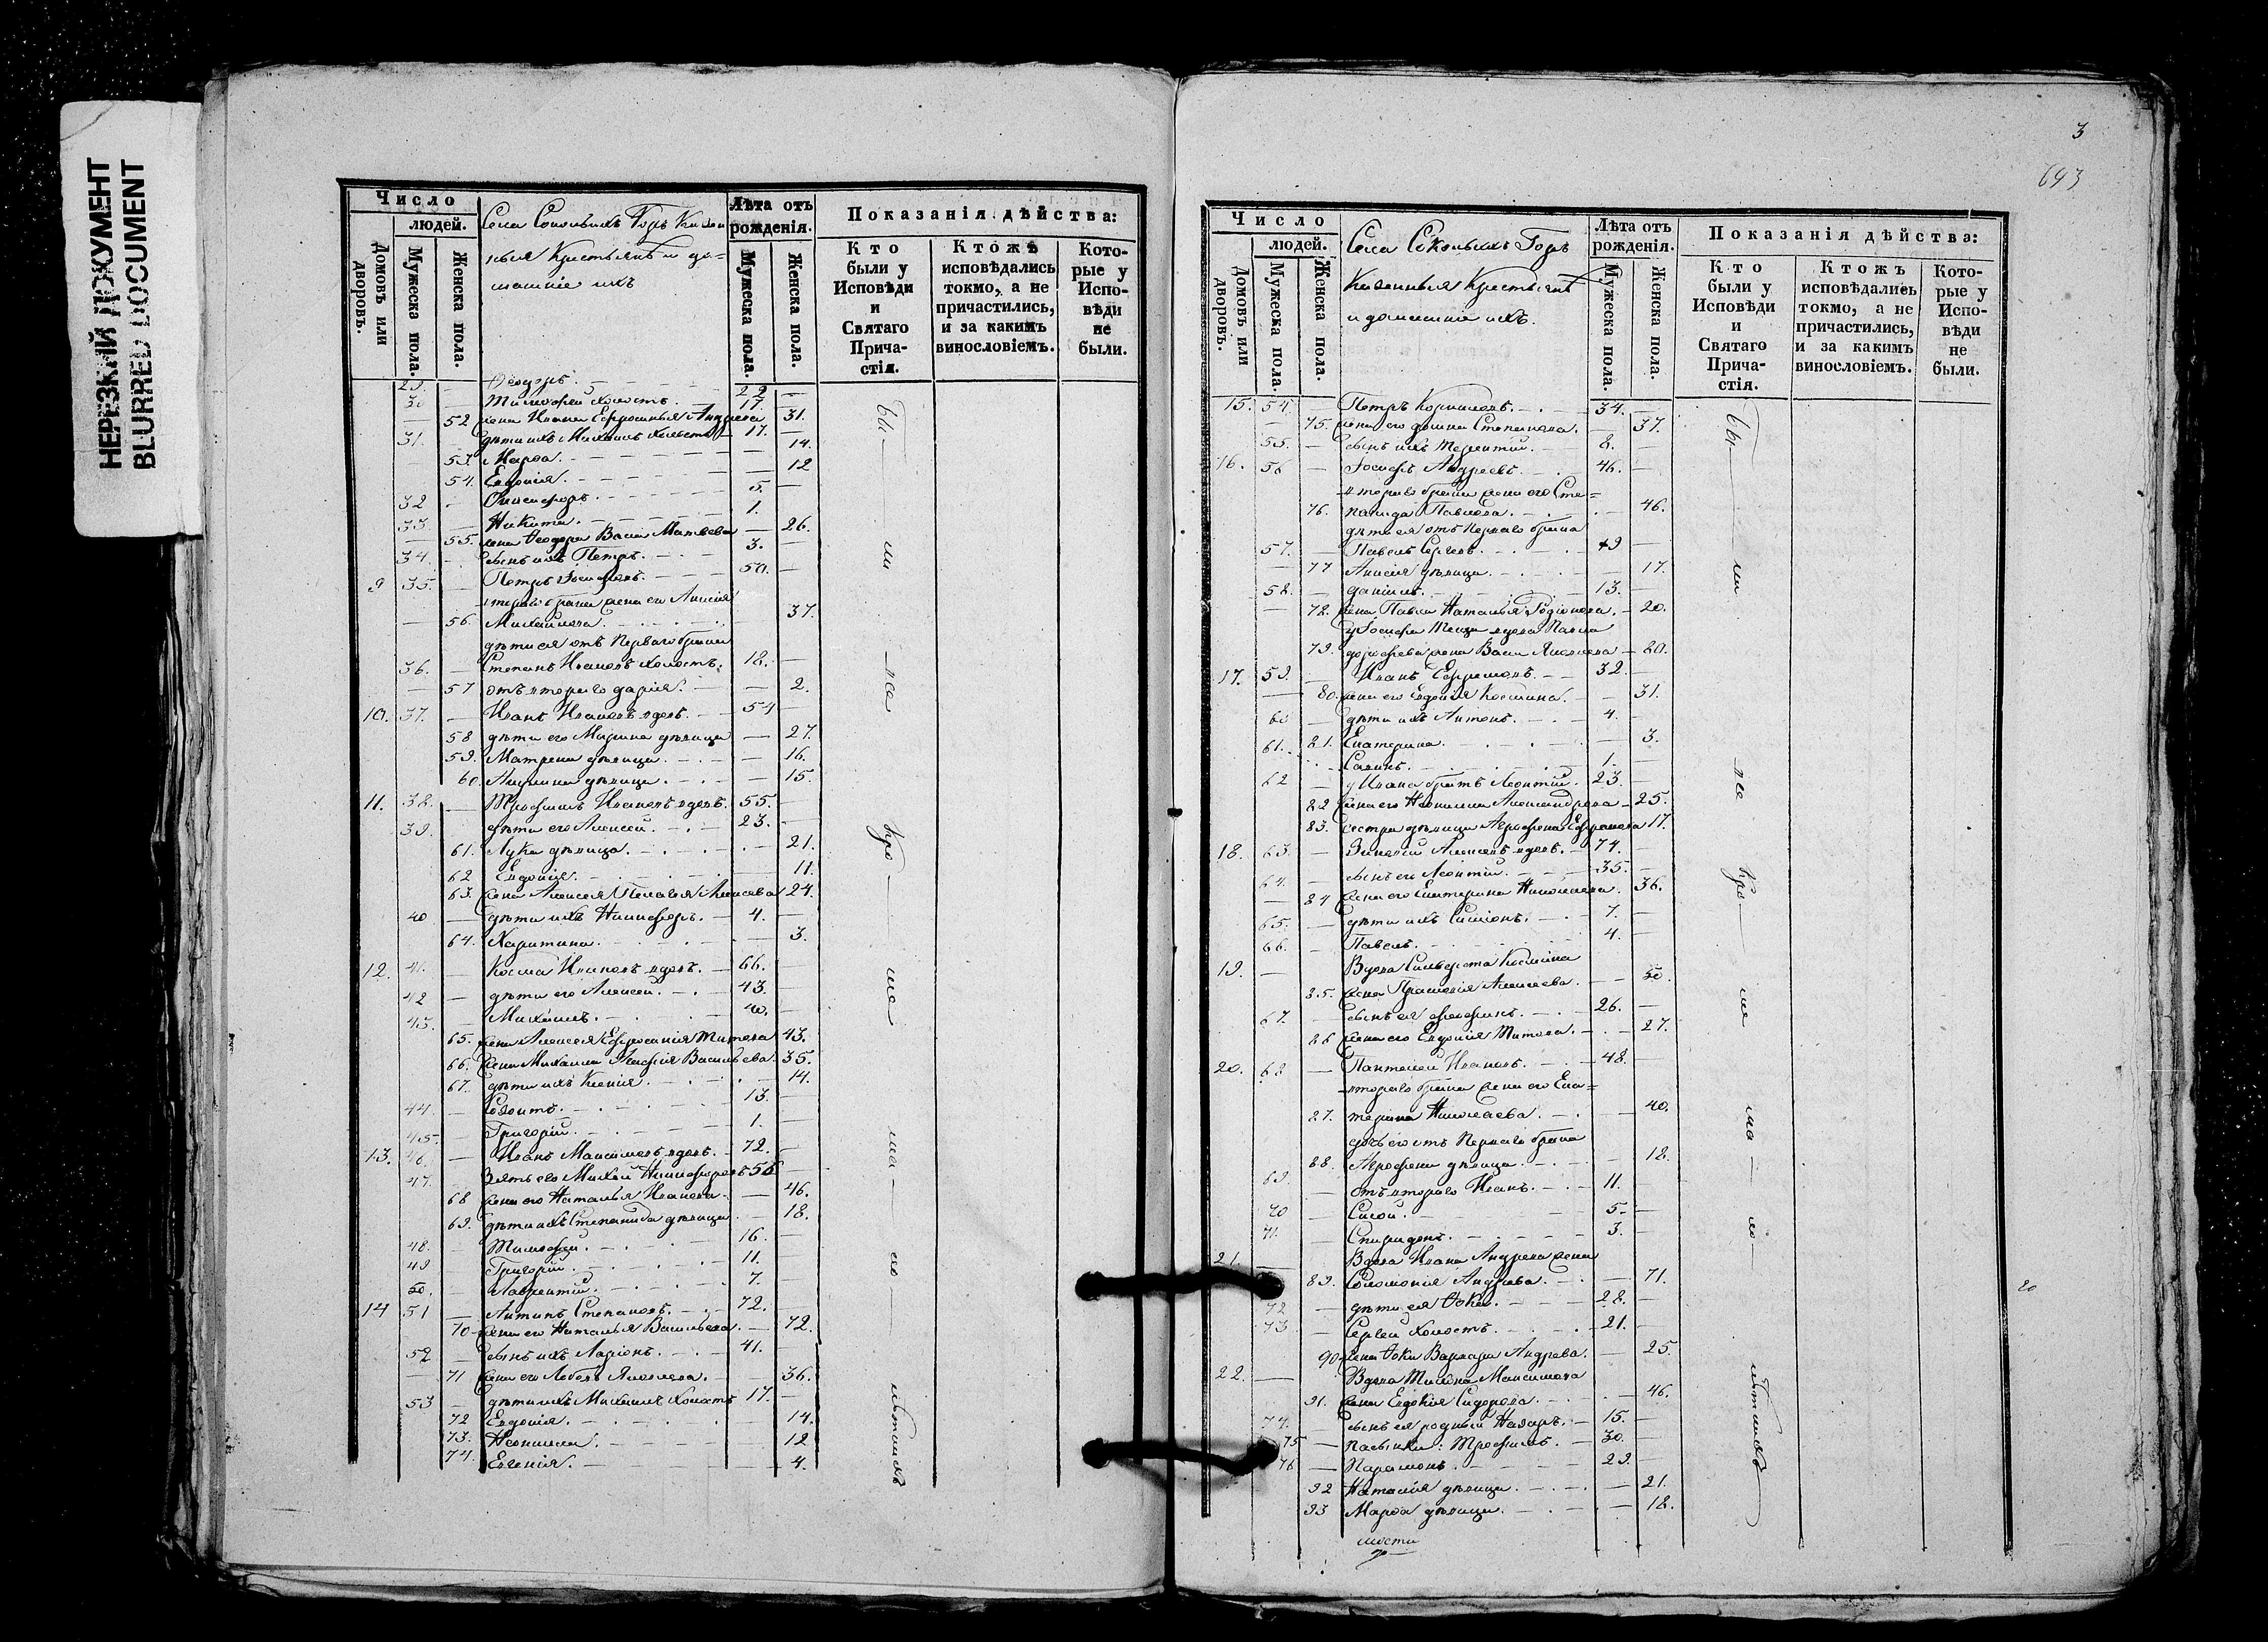 НЕРЕЗКИЙ ДОКУМЕНТ
BLURRED DOCUMENT
Число
людей.
Домовъ или дворовъ.
Мужеска пола.
Женска пола.
Села Сокольихъ Горъ
Крестьянъ и до=
машніе ихъ
Лѣта отъ рожденія.
Мужеска пола.
Женска пола.
Показанія дѣйства:
Кто были у Исповѣди и Святаго Прича-стія.
Ктожъ исповѣдались токмо, а не причастились, и за какимъ винословіемъ.
Кото-рые у Испо-вѣди не были.
29. Ѳеодоръ. 22
30 Тимоѳей холостъ. 17
52 жена Ивана Андреева 31.
31. дѣти ихъ Михаилъ холостъ 17.
53. Марѳа. 14.
54. Евдокія. 12
32 5.
33 Никита. 1.
55. жена Ѳеодора Васса Матвеева 26.
34. сынъ ихъ Петръ. 3.
9 35. Петръ Іосифовъ. 50.
втораго брака жена его Анисія
56. Михайлова. 37.
дѣти ея отъ перваго брака
36. Степанъ Ивановъ холостъ. 18.
57 отъ втораго Дарія. 2.
10. 37. Иванъ Ивановъ вдовъ. 54
58 дѣти его Марина дѣвица 27.
59. Матрена дѣвица. 16.
60. Акулина дѣвица. 15.
11. 38. Трофимъ Ивановъ вдовъ. 55.
39. дѣти его Алексей. 23.
61. дѣвица. 21.
62 Евдокія. 11.
63. жена Алексея Пелагея Алексеева 24.
40 дѣти ихъ Никифоръ. 4.
64. Харитина. 3.
12. 41. Косма Ивановъ вдовъ. 66.
42 дѣти его Алексей. 43.
43. Михаилъ. 40.
65. жена Алексея Ефросинія Титова 43.
66. жена Михаила Агафія Васильева. 35.
67. дѣти ихъ Ксенія. 14.
44. 13.
45. Григорій. 1.
13. 46. Иванъ Максимовъ вдовъ. 72.
47. Зять его Михей Никифоровъ 56
68 жена его Наталья Иванова. 46.
69. дѣти ихъ Степанида дѣвица 18.
48. Тимофей. 16.
49 Григорій. 11.
50. Лаврентій. 7.
14 51 Антипъ Степановъ. 72.
70 жена его Наталья Васильева. 72.
52 сынъ ихъ Ларіонъ. 41.
71 жена его Яковлева. 36.
53 дѣти ихъ Михаилъ холостъ 17.
72 Евдокія. 14.
73. Неонилла. 12
74. Евгенія. 4.
3
693
Число
людей.
Домовъ или дворовъ.
Мужеска пола.
Женска пола.
Села Сокольихъ Горъ
Казенныя Крестьяне
и домашніе ихъ.
Лѣта отъ рожденія.
Мужеска пола.
Женска пола.
Показанія дѣйства:
Кто были у Исповѣди и Святаго Прича-стія.
Ктожъ исповѣдались токмо, а не причастились, и за какимъ винословіемъ.
Кото-рые у Испо-вѣди не были.
15. 54. Петръ Корниловъ. 34.
75. жена его Домна Степанова. 37.
55. сынъ ихъ Терентій. 8.
16. 56 Іосифъ Андреевъ. 46.
втораго брака жена его Сте=
76. панида Павлова. 46.
дѣти ея отъ перваго брака
57. Павелъ Сергеевъ. 19
77 Анисія дѣвица. 17.
58. Даніилъ. 13.
78. жена Павла Наталья Родіонова. 20.
79. жена Васса Яковлева 20.
17. 59. Иванъ Ефремовъ. 32.
80. жена его Евдокія Космина. 31.
60 дѣти ихъ Антонъ. 4.
61. 81. Екатерина. 3.
1.
62 у Ивана братъ Леонтій. 23.
82 жена его Неонилла Александрова 25.
83. сестра дѣвица Агрофена Ефремова 17.
18. 63. Алексеевъ вдовъ. 74.
64. сынъ его Леонтій. 35.
84 жена его Екатерина Николаева. 36.
65. дѣти ихъ Симеонъ. 7.
66. Павелъ. 4.
19. Вдова Сильверста Космина
85. жена Прасковія Алексеева. 50
67. сынъ ея 26.
86 жена его Евдокія Титова. 27.
20. 68 Пантелей Ивановъ. 48.
втораго брака жена его Ека=
87. терина Николаева. 40.
дочь его отъ перваго брака
88. Агрофена дѣвица. 18.
69. отъ втораго Иванъ. 11.
70 Сисой. 5.
71. Спиридонъ. 3.
21. Вдова Ивана Андреева жена
89. Соломонія Андреева. 71.
72 дѣти ея Ѳока. 28.
73 Сергей холостъ. 21.
90 жена Ѳоки Варвара Андреева. 25.
22. Вдова Максимова
91. жена Евдокія Сидорова. 46.
74. сынъ ея родный Назаръ. 15.
75 пасынки: Трофимъ. 30.
76 Парамонъ. 29.
92 Наталія дѣвица. 21.
93 Марѳа дѣвица. 18.